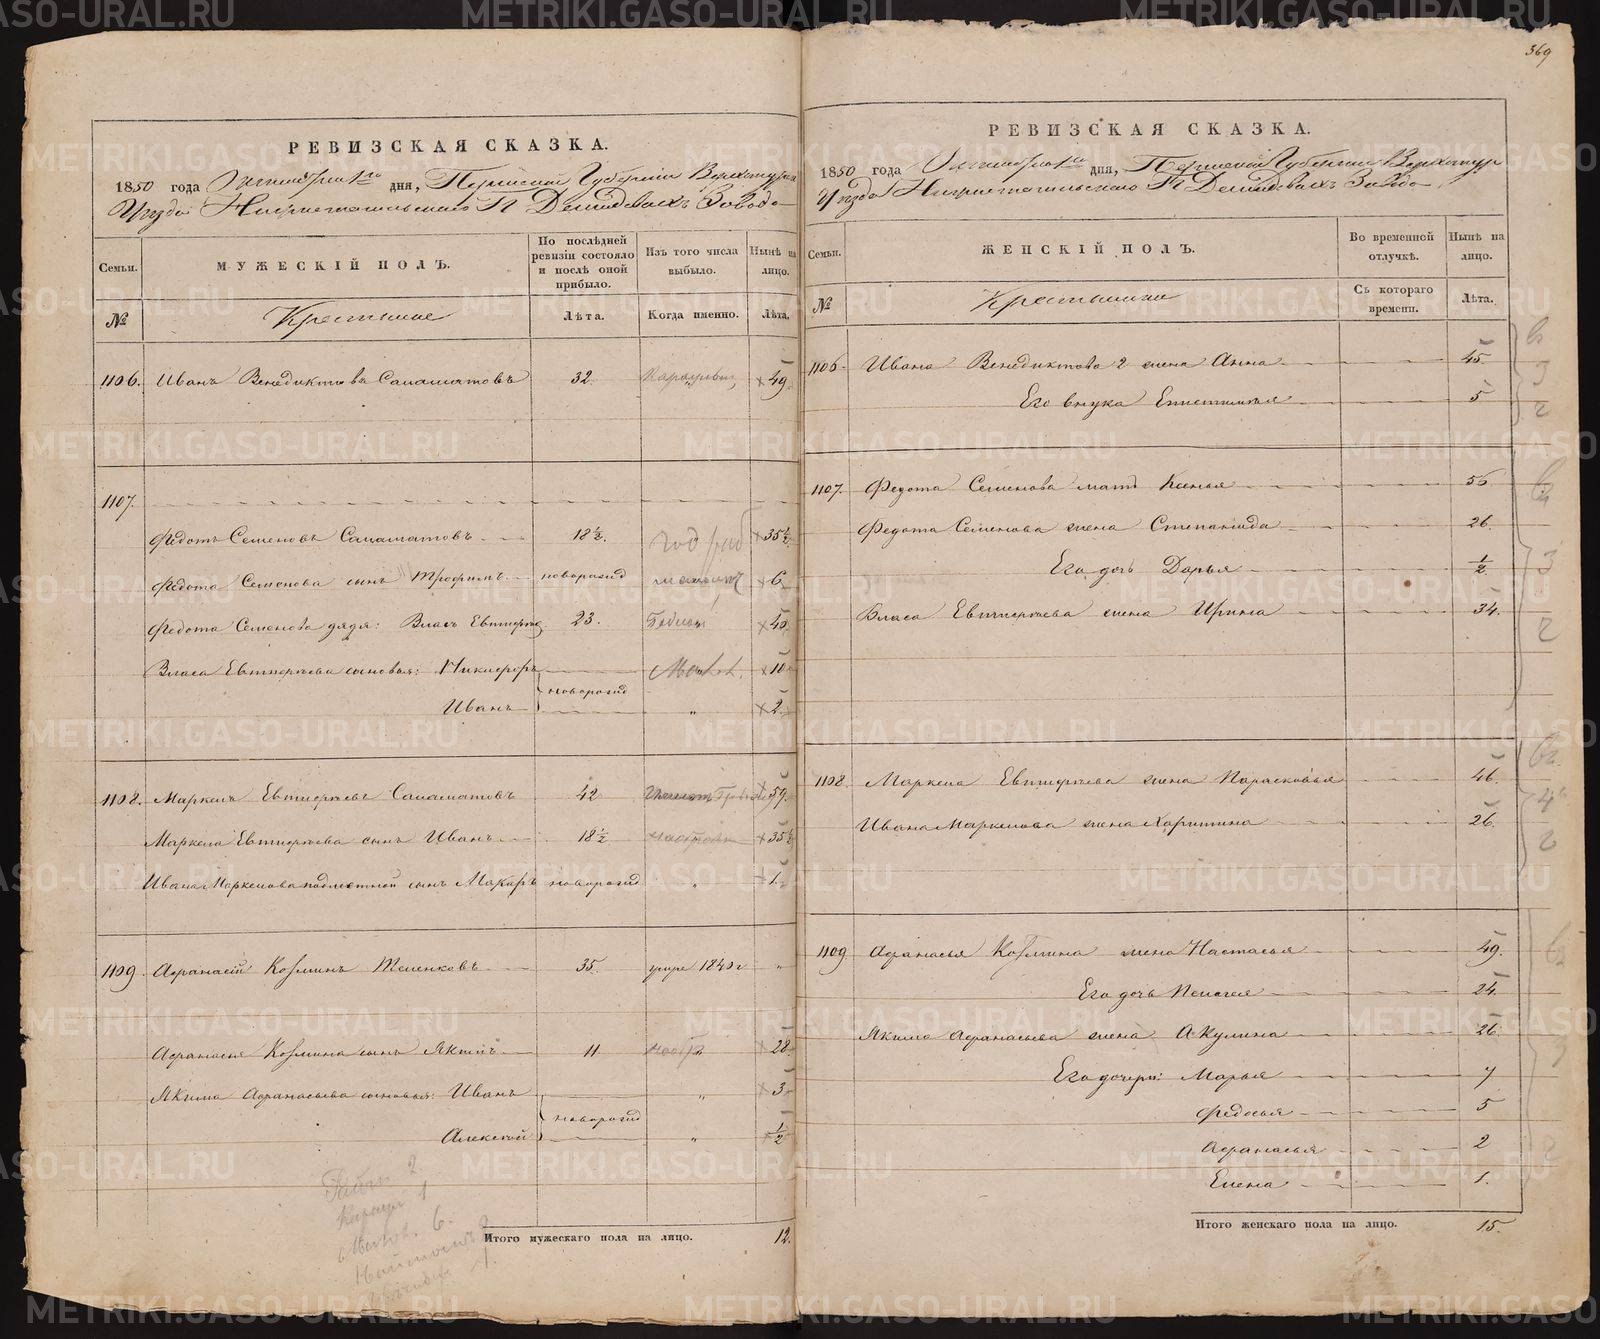 369
РЕВИЗСКАЯ СКАЗКА.
1850 года дня, Пермской Губернiи Верхотурск
Уѣзда Нижнетагильскаго Демидовыхъ Завода
Семьи. МУЖЕСКIЙ ПОЛЪ. По послѣдней ревизiи состояло и послѣ оной прибыло. Изъ того числа выбыло. Нынѣ на лицо.
№ Крестьяне Лѣта. Когда именно. Лѣта.
1106. Иванъ Венедиктовъ Саламатовъ 32. 49
1107.
Федотъ Семеновъ Саламатовъ 18½. 35½
Федота Семенова сынъ Трофимъ новорожд 6
Федота Семенова дядя: Власъ Евтифѣев 23. 40
Власа Евтифѣева сыновья: Никифоръ 10
новорожд
Иванъ " 2
1108. Маркелъ Евтифѣевъ Саламатовъ 42 59
Маркела Евтифѣева сынъ Иванъ 18½ 35½
Ивана Маркелова сынъ Макаръ новорожд " 1
1109. Афанасiй Козминъ Теленковъ 35. умре 1840 г "
Афанасья Козмина сынъ Якимъ 11 28
Якима Афанасьева сыновья: Иванъ " 3
новорожд
Алексѣй " ½
2
1
6.
1.
Итого мужескаго пола на лицо. 12.
РЕВИЗСКАЯ СКАЗКА.
1850 года дня, Пермской Губернiи Верхотур
Уѣзда Нижнетагильскаго Демидовыхъ Завода
Семьи. ЖЕНСКIЙ ПОЛЪ. Во временной отлучкѣ. Нынѣ на лицо.
№ Крестьянки Съ котораго времени. Лѣта.
1106. Ивана Венедиктова 2 жена Анна 45
Его внука Епистимья 5
1107. Федота Семенова мать Ксенья 56
Федота Семенова жена Степанида 26
Его дочь Дарья ½
Власа Евтифѣева жена Ирина 34.
1108. Маркела Евтифѣева жена Парасковья 46.
Ивана Маркелова жена Харитина 26
1109 Афанасья Козмина жена Настасья 49.
Его дочь Пелагея 24
Якима Афанасьева жена Акулина 26
Его дочери: Марья 7
Федосья 5
Афанасья 2
Елена 1.
Итого женскаго пола на лицо. 15.
METRIKI.GASO-URAL.RU